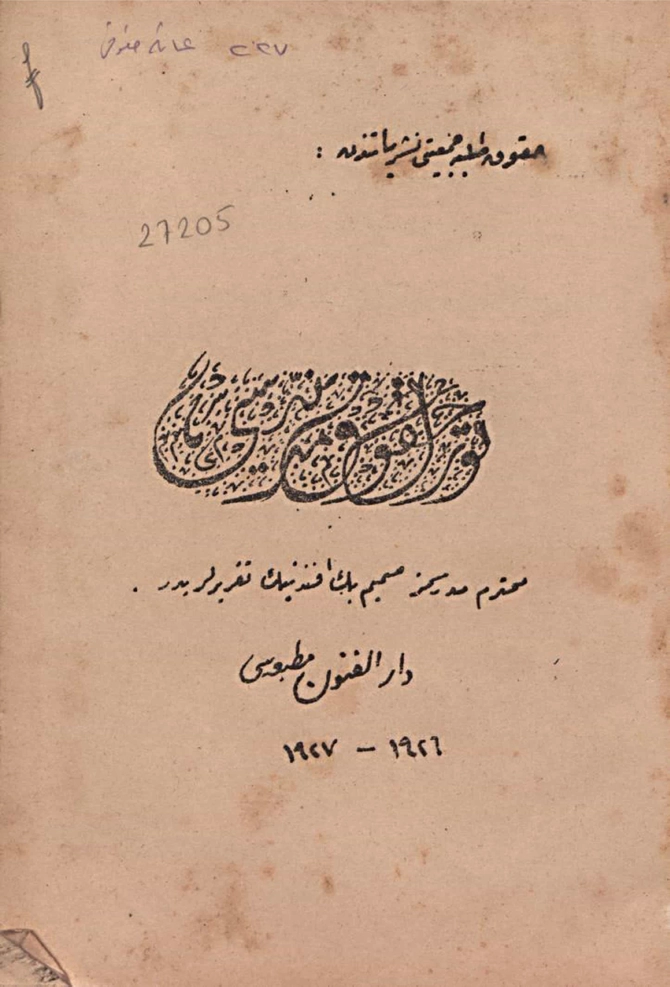 ٢٢٧
حقوق طلبه جمعیتی نشریاتندن :
27205
تورك حقوق مدنیه سی
محترم مدرسمز صمیم بك افندینك تقریرلریدر .
دار الفنون مطبعه سی
١٩٢٦ – ١٩٢٧